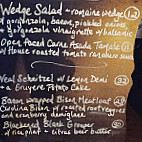 Wedge Salad ~ romaine wedge 12
w/ gorgonzola, bacon, pickled onions
+ gorgonzola vinaigrette w/ balsamic
Open faced Carne Asada Tamale 11
w/ House roasted tomato ranchero sauce
Veal Schnitzel w/ Lemon Demi 32
+ a Gruyere Potato Cake
Bacon Wrapped Bison Meatloaf
Cumberland w/ roasted root veggies
and cranberry demiglace
Blackened Black Grouper 30
w/ + citrus beur butter